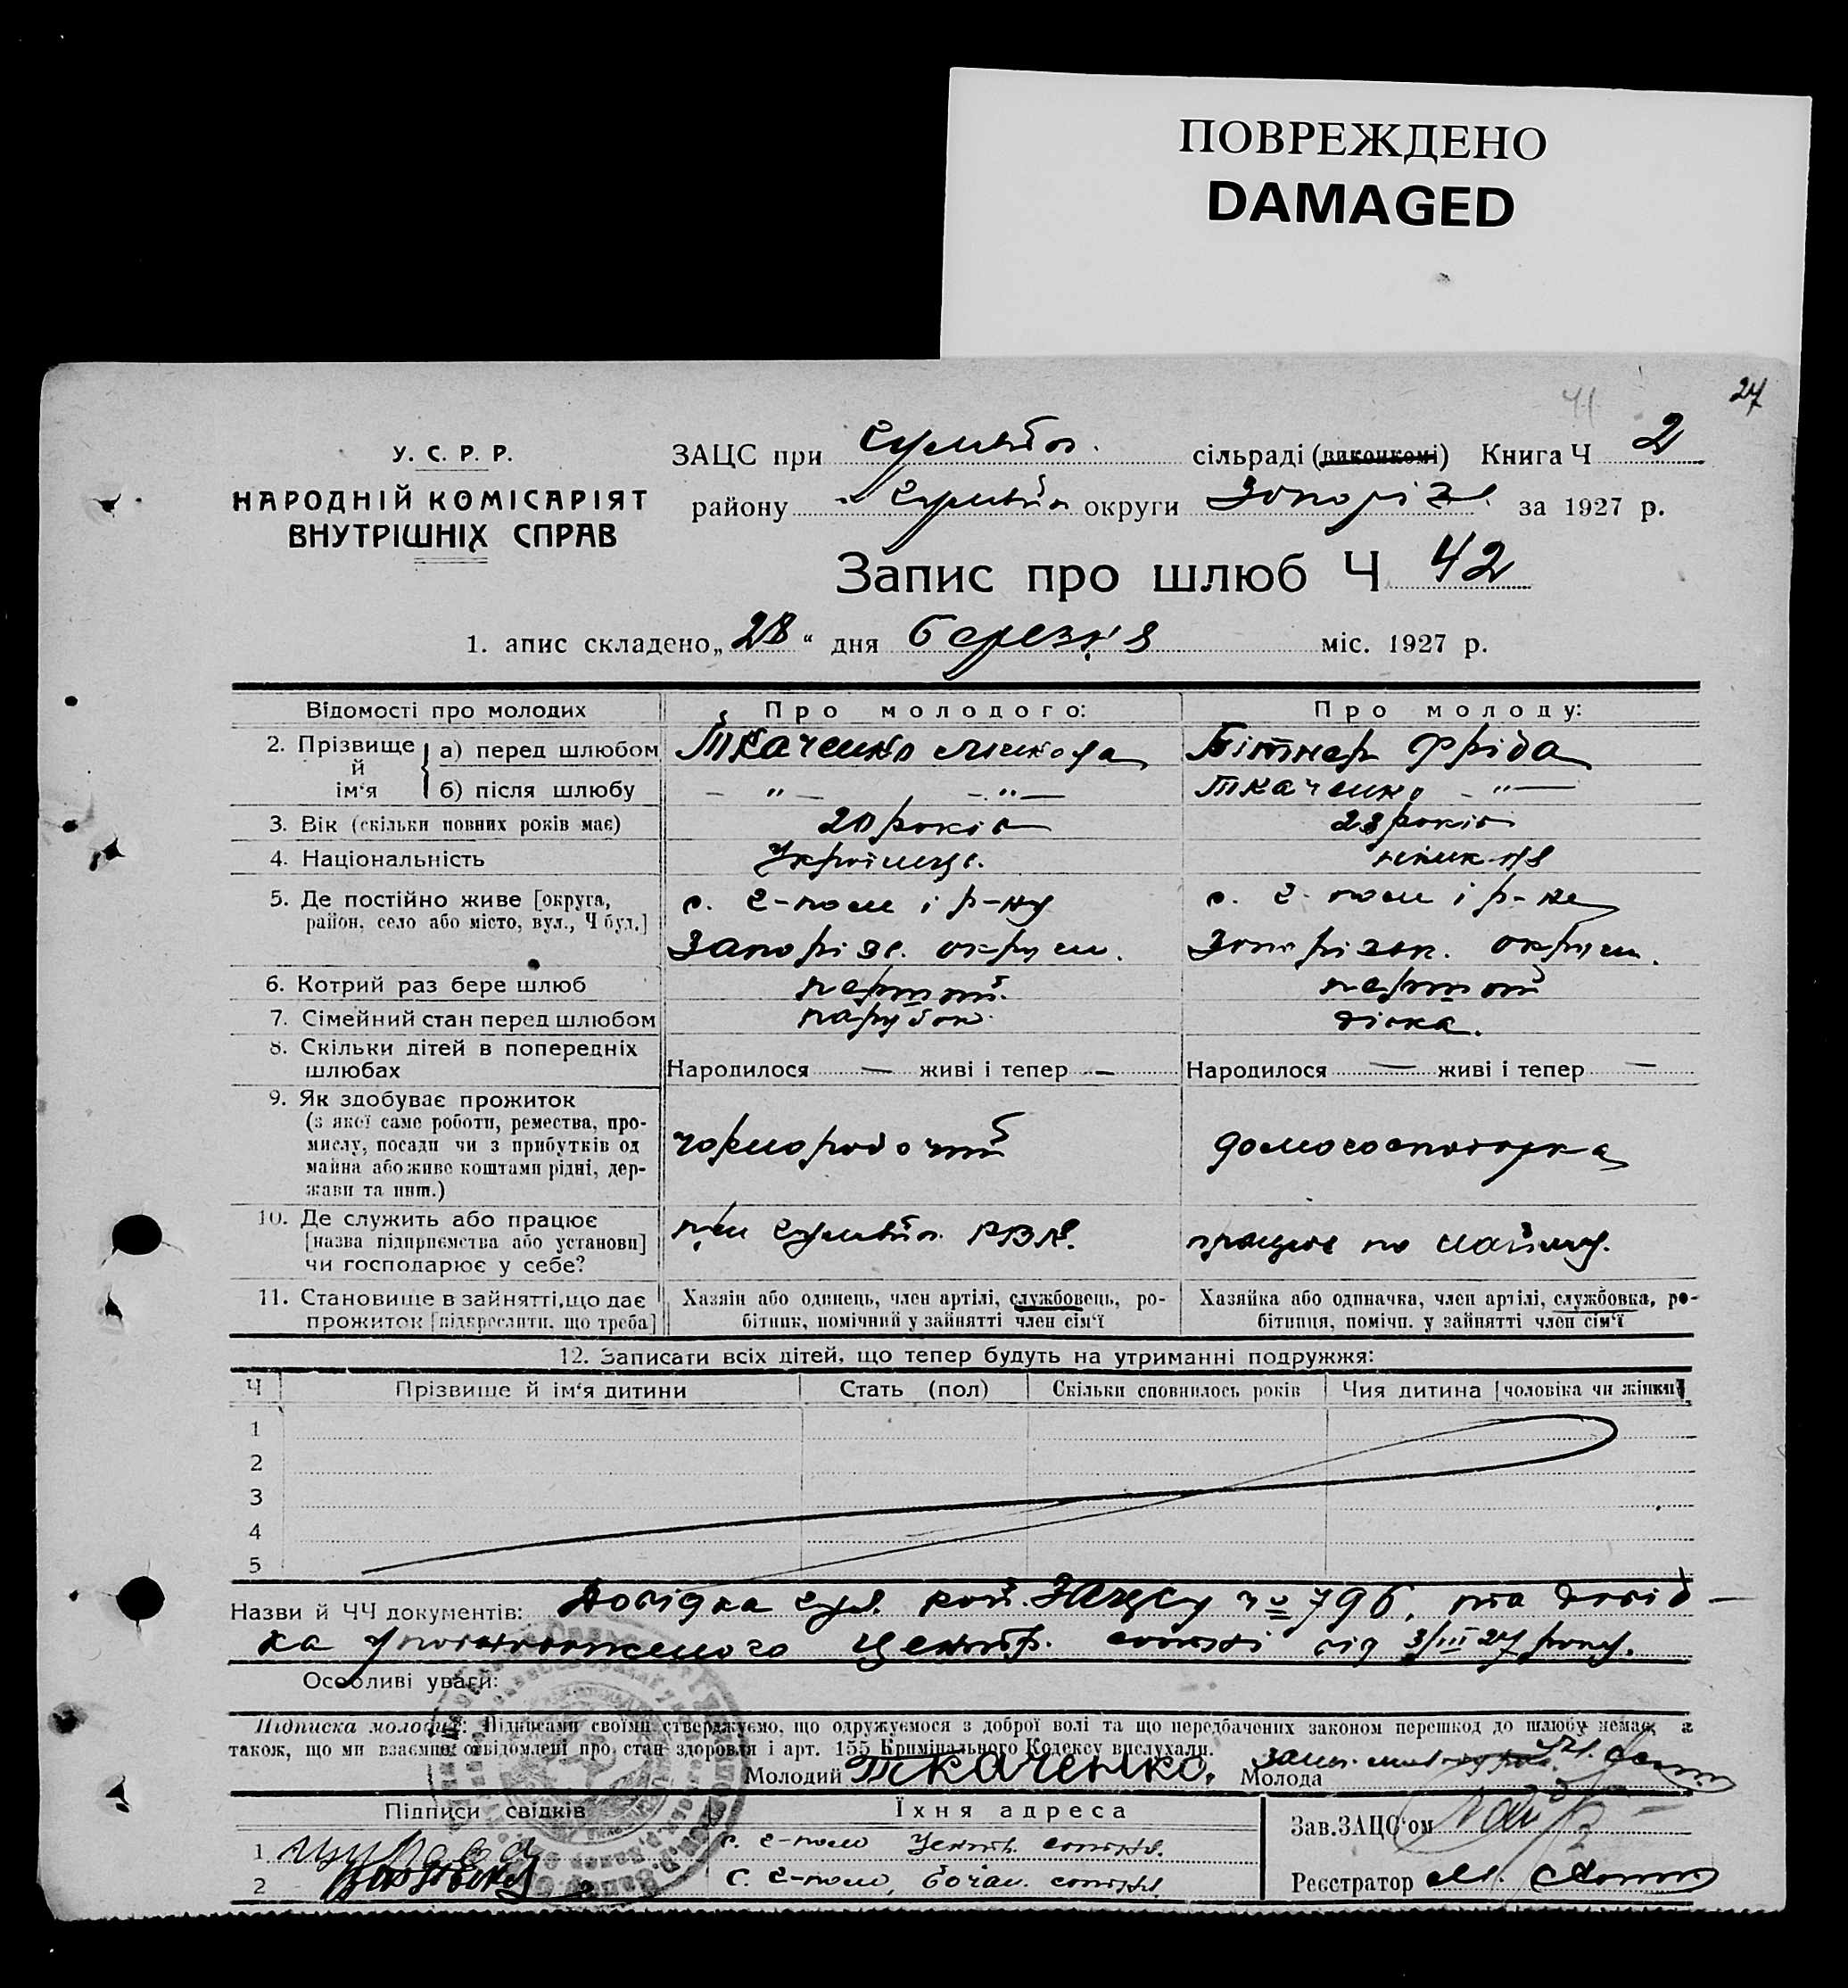 ПОВРЕЖДЕНО
DAMAGED
27
41
У. С. Р. Р.
НАРОДНІЙ КОМІСАРІЯТ
ВНУТРІШНІХ СПРАВ
ЗАЦС при сільраді (виконкомі) Книга Ч 2
району округи Запоріж. за 1927 р.
Запис про шлюб Ч 42
1. апис складено „28“ дня березня міс. 1927 р.
Відомості про молодих Про молодого: Про молоду:
2. Прізвище й ім‘я а) перед шлюбом Ткаченко Микола Бітнер Фріда
б) після шлюбу — „ — — „ — Ткаченко — „ —
3. Вік (скільки повних років має) 20 років 23 років
4. Національність Україінець німкиня
5. Де постійно живе [округа, район, село або місто, вул., Ч буд.] с. Г-поле і р-ну с. Г-поле і р-ну
Запоріж. округи. Запорізьк. округи.
6. Котрий раз бере шлюб первий первий
7. Сімейний стан перед шлюбом парубок дівка.
8. Скільки дітей в попередніх шлюбах Народилося — живі і тепер — Народилося — живі і тепер —
9. Як здобуває прожиток
(з якої саме роботи, ремества, про-
мислу, посади чи з прибутків од
майна або живе коштами рідні, дер-
жави та инш.)
чорноробочий домогосподарка
10. Де служить або працює
[назва підприємства або установи]
чи господарює у себе?
при РВК. працює по найму.
11. Становище в зайнятті, що дає
прожиток [підкреслити, що треба]
Хазяїн або одинець, член артілі, службовець, ро-
бітник, помічний у зайнятті член сім‘ї
Хазяйка або одиначка, член артілі, службовка, ро-
бітниця, помічн. у зайнятті член сім‘ї
12. Записати всіх дітей, що тепер будуть на утриманні подружжя:
Ч Прізвище й ім‘я дитини Стать (пол) Скільки сповнилось років Чия дитина [чоловіка чи жінки]
1
2
3
4
5
Назви й ЧЧ документів: Довідка рай. Загсу № 796, та довід-
ка уповноваженого Центр. сотні від 3/III 27 року.
Особливі уваги:
Підписка молодих: Підписами своїми стверджуємо, що одружуємося з доброї волі та що передбачених законом перешкод до шлюбу немає, а
також, що ми взаємно освідомлені про стан здоровля і арт. 155 Кримінального Кодексу вислухали.
Молодий Ткаченко. Молода
Підписи свідків Їхня адреса Зав. ЗАЦС‘ом
1 с. Г-поле Центр. сотня.
2 с. Г-поле, сотня. Реєстратор